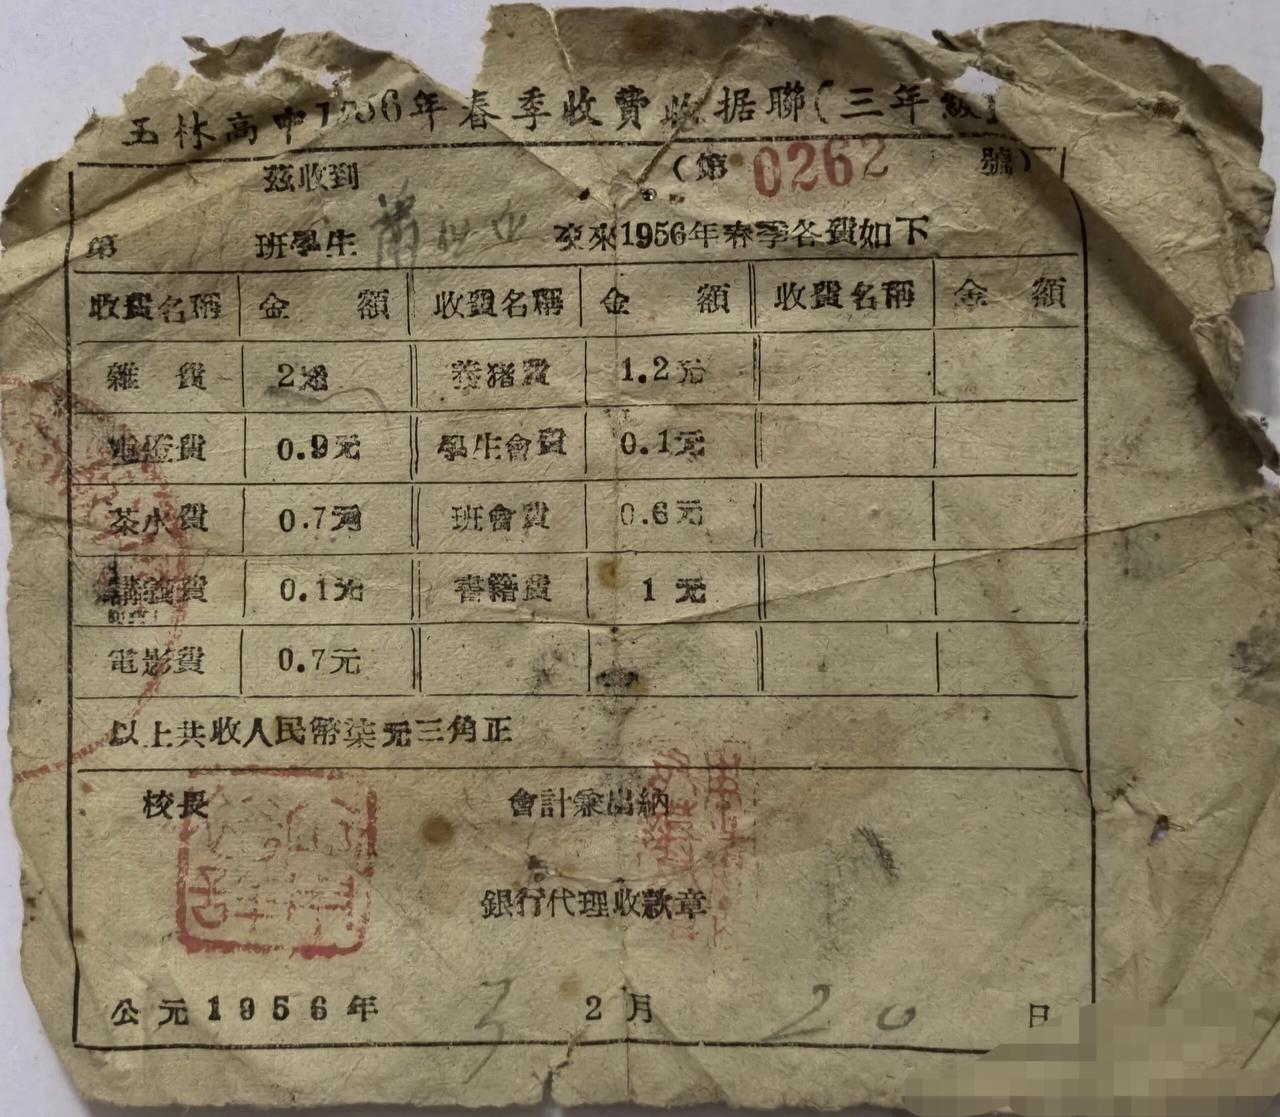 玉林高中1956年春季收費收据聯(三年級)
茲收到 (第 0262 號)
第 班學生 交來1956年春季各費如下
收費名稱 金 額 收費名稱 金 額 收費名稱 金 額
雜 費 2元 養猪費 1.2元
電燈費 0.9元 學生會費 0.1元
茶水費 0.7元 班會費 0.6元
講義費 0.1元 書籍費 1 元
電影費 0.7元
以上共收人民幣柒元三角正
校長 會計兼出納
銀行代理收款章
公元1956年 3 2月 20 日